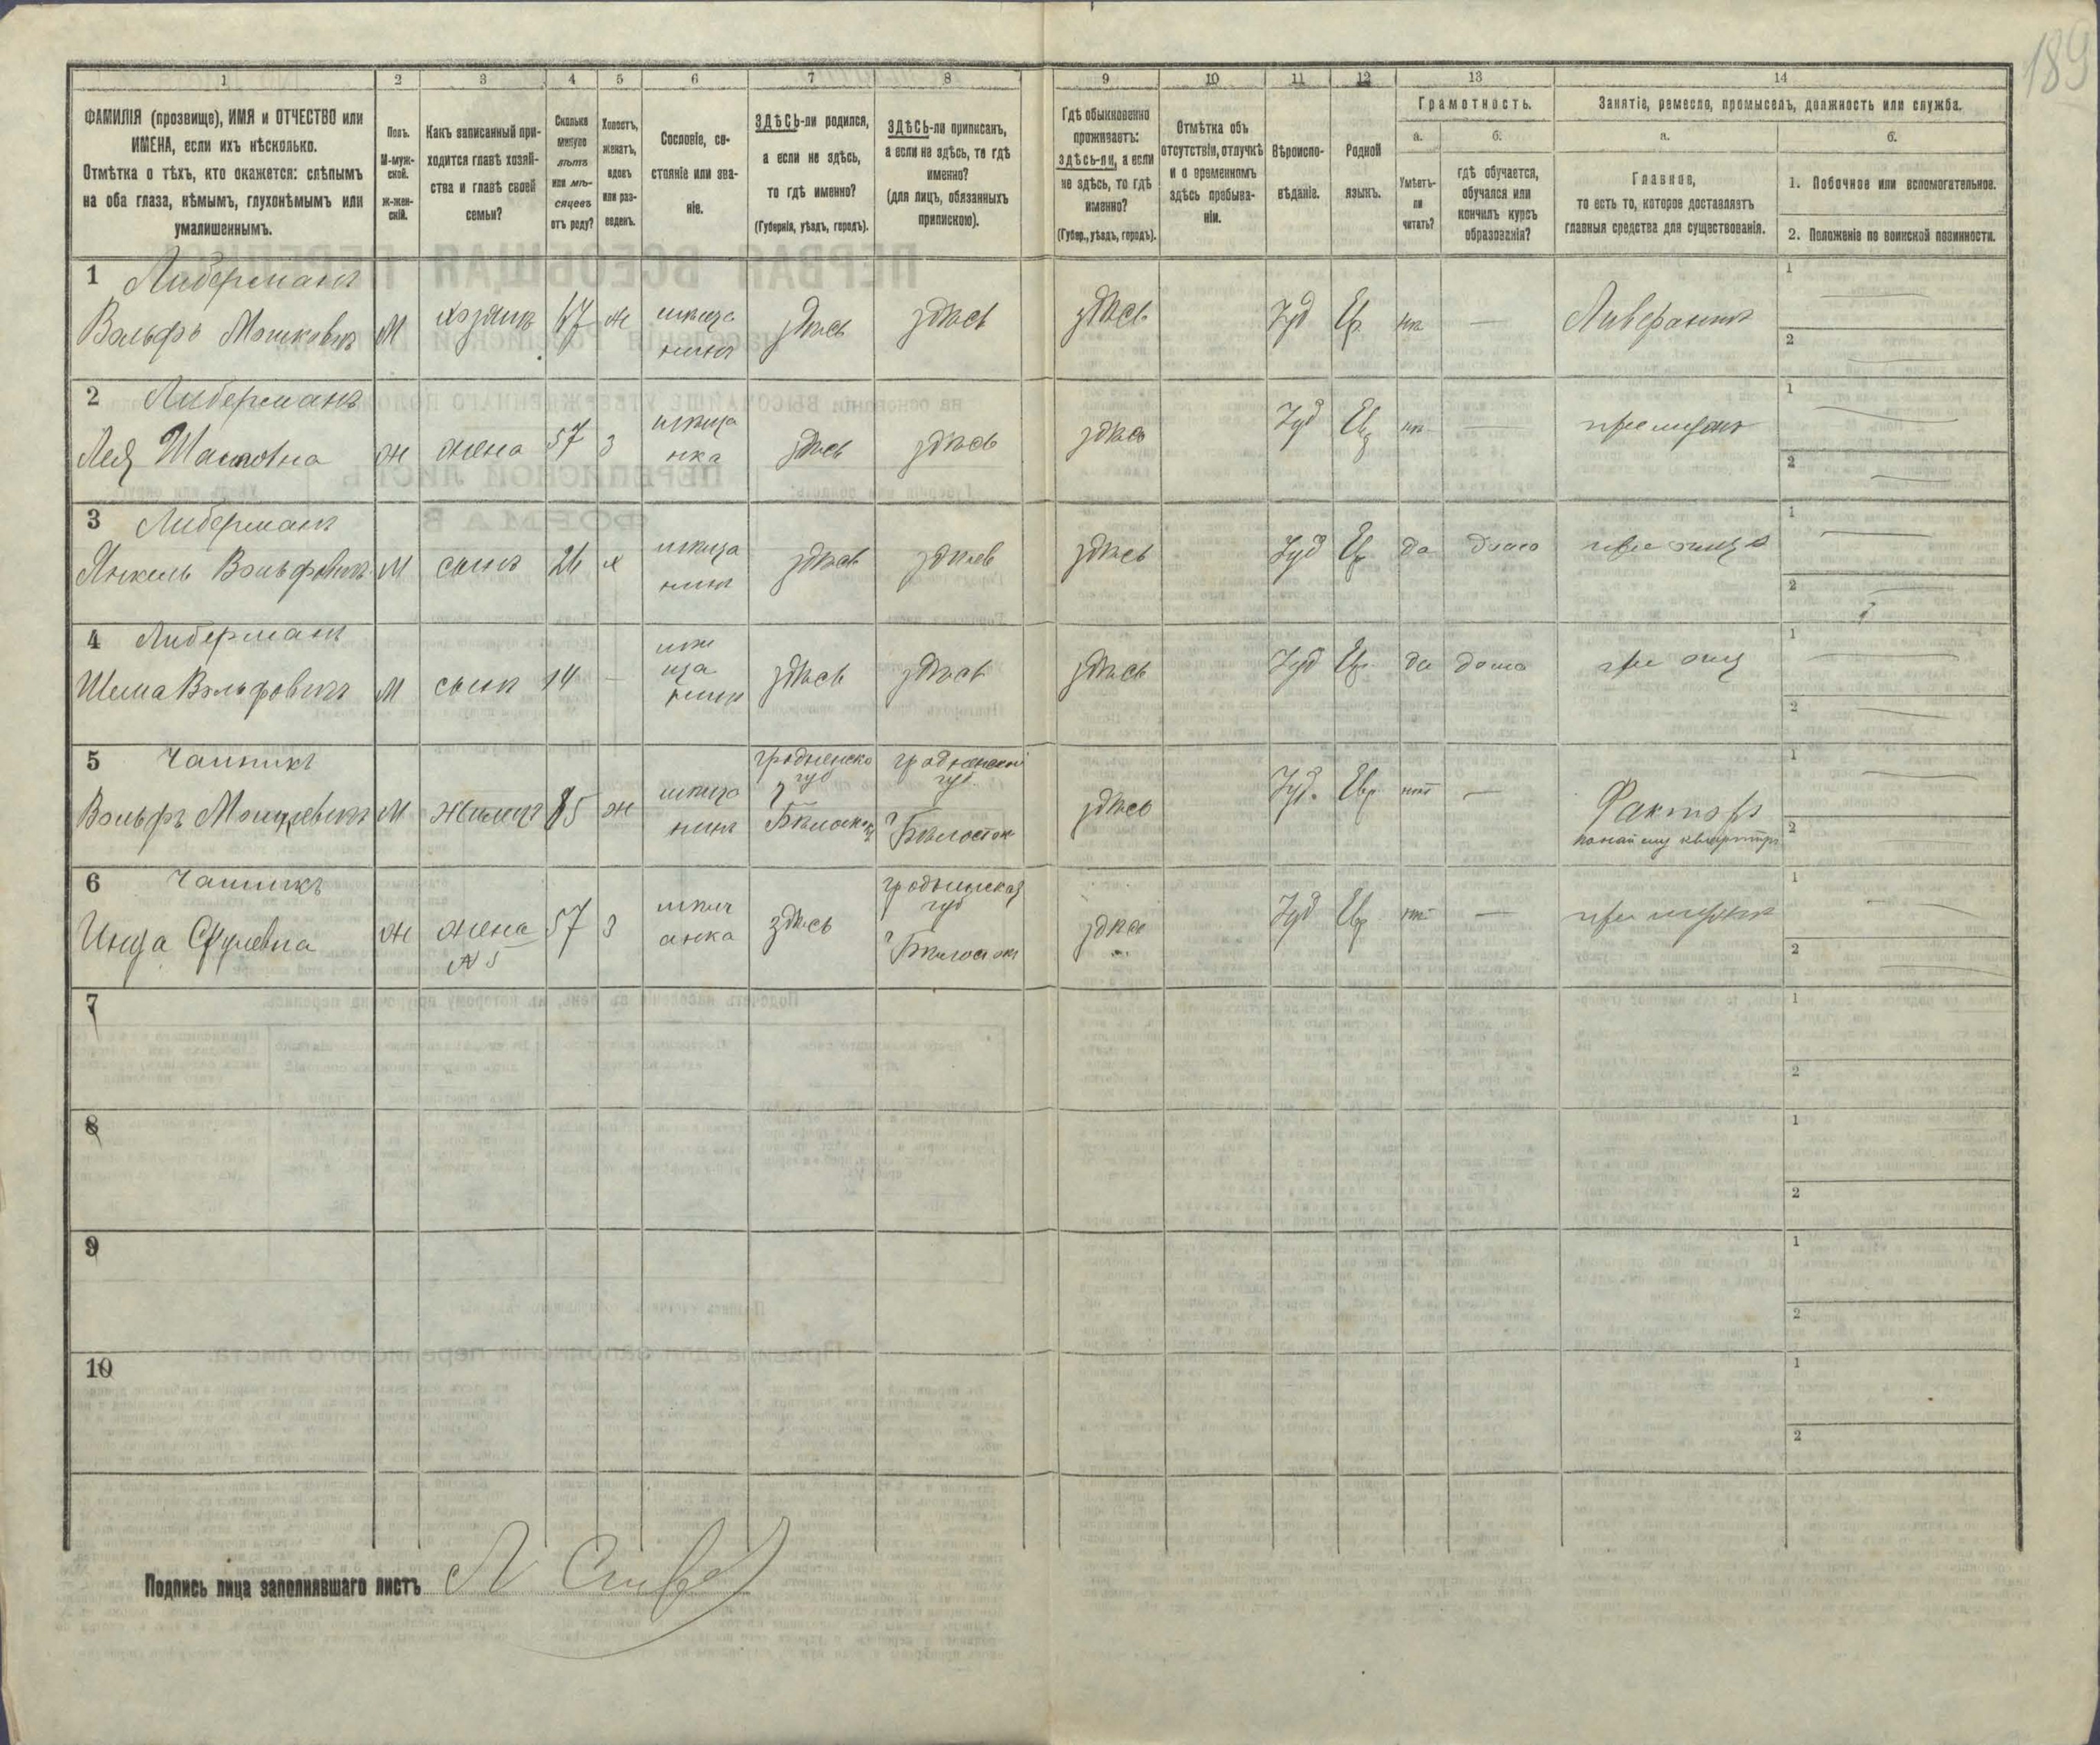 189
1 2 3 4 5 6 7 8 9 10 11 12 13 14
ФАМИЛІЯ (прозвище), ИМЯ и ОТЧЕСТВО или
ИМЕНА, если ихъ нѣсколько.
Отмѣтка о тѣхъ, кто окажется: слѣпымъ
на оба глаза, нѣмымъ, глухонѣмымъ или
умалишеннымъ.
Полъ.
М-муж-
ской.
Ж-жен-
скій.
Какъ записанный при-
ходится главѣ хозяй-
ства и главѣ своей
семьи?
Сколько
минуло
лѣтъ
или мѣ-
сяцевъ
отъ роду?
Холостъ,
женатъ,
вдовъ
или раз-
веденъ.
Сословіе, со-
стояніе или зва-
ніе.
ЗДѢСЬ-ли родился,
а если не здѣсь,
то гдѣ именно?
(Губернія, уѣздъ, городъ).
ЗДѢСЬ-ли приписанъ,
а если не здѣсь, то гдѣ
именно?
(для лицъ, обязанныхъ
припискою).
Гдѣ обыкновенно
проживаетъ:
здѣсь-ли, а если
не здѣсь, то гдѣ
именно?
(Губер., уѣздъ, городъ).
Отмѣтка объ
отсутствіи, отлучкѣ
и о временномъ
здѣсь пребыва-
ніи.
Вѣроиспо-
вѣданіе.
Родной
языкъ.
Грамотность.
а.
Умѣетъ-
ли
читать?
б.
гдѣ обучается,
обучался или
кончилъ курсъ
образованія?
Занятіе, ремесло, промыселъ, должность или служба.
а.
Главное,
то есть то, которое доставляетъ
главныя средства для существованія.
б.
1. Побочное или вспомогательное.
2. Положеніе по воинской повинности.
1 Либерманъ
Вольфъ Мошковичъ М хозяинъ 67 ж мѣща
нинъ здѣсь здѣсь здѣсь Іуд Ев. нѣ — Ливерантъ
1
2
2 Либерманъ
Лея ж жена 57 з мѣща
нка здѣсь здѣсь здѣсь Іуд Евр нѣ —
1
2
3 Либерманъ
Янкель Вольфовичъ М сынъ 26 х мѣща
нинъ здѣсь здѣсь здѣсь Іуд Ев да дома при отцѣ
1
2
4 Либерманъ
Шлиа Вольфовичъ М сынъ 14 — мѣ
ща
нинъ здѣсь здѣсь здѣсь Іуд Ев. да дома при отц
1
2
5 Чапникъ
Вольфъ М жилецъ 85 ж мѣща
нинъ
гродненско
губ
г Бѣлосток
гродненской
губ.
г Бѣлосток
здѣсь Іуд. Евр нѣт — Факторъ
1
2
6 Чапникъ
ж жена
№ 5 57 з мѣщ
анка здѣсь
гродненская
губ
г Бѣлосток
здѣсь Іуд Евр нѣт —
1
2
7
1
2
8
1
2
9
1
2
10
1
2
Подпись лица заполнявшаго листъ